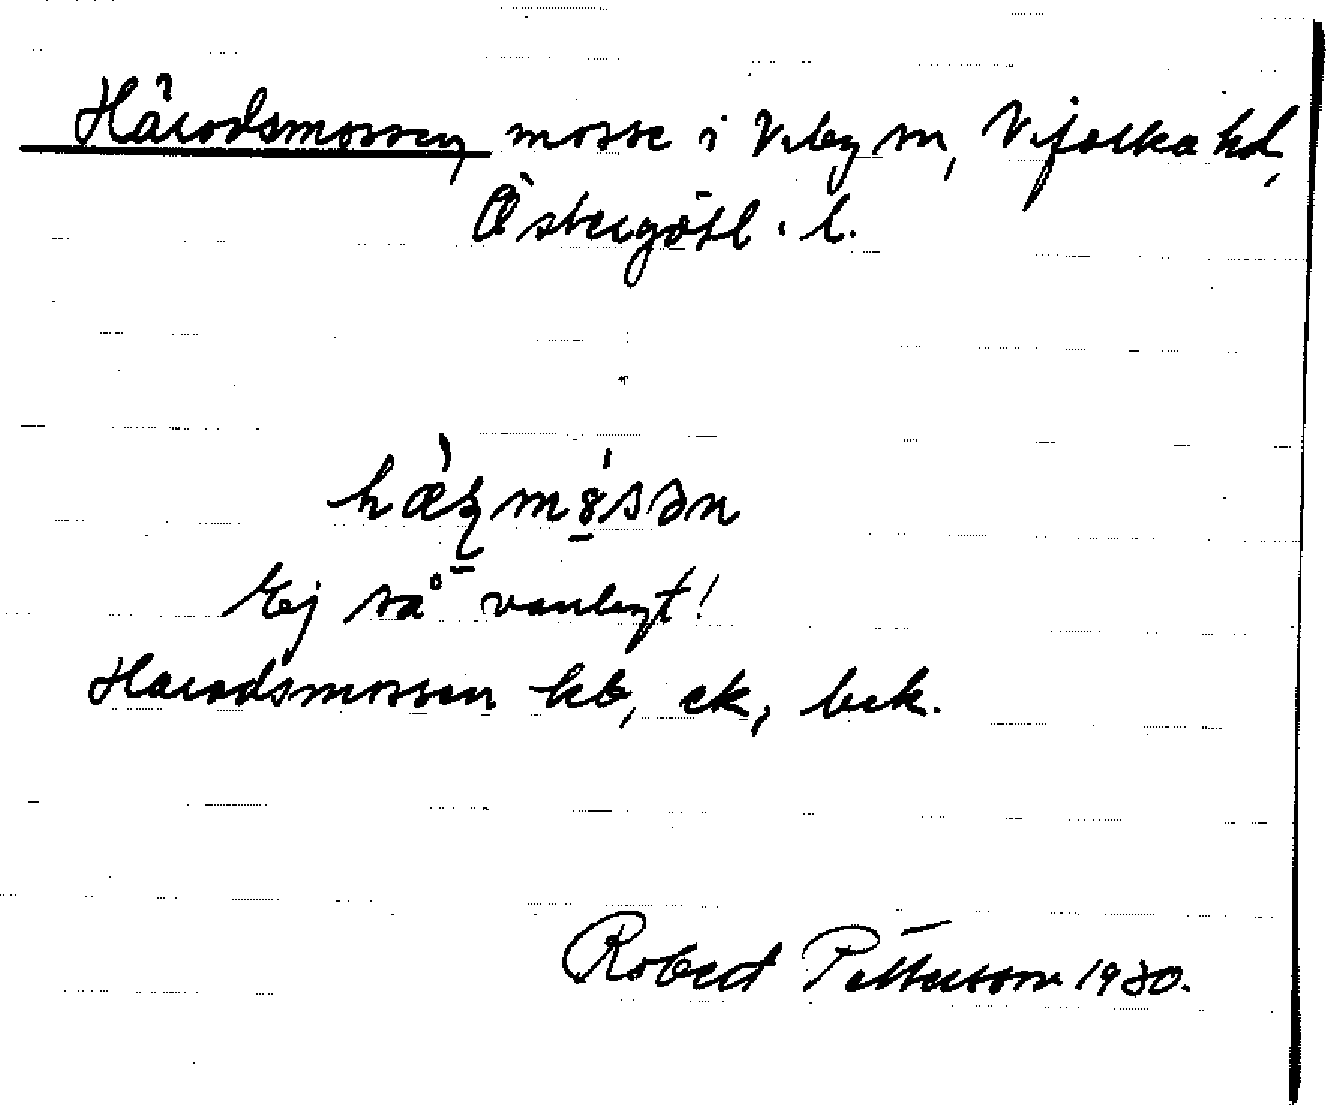 Häradsmossen, mosse i Viby sn, Vifolka hd,
Östergötl. l.
hæ̀ʒmósən
Ej så vanligt!
Haradsmossen kb, ek, bek.
Robert Pettersson 1930.